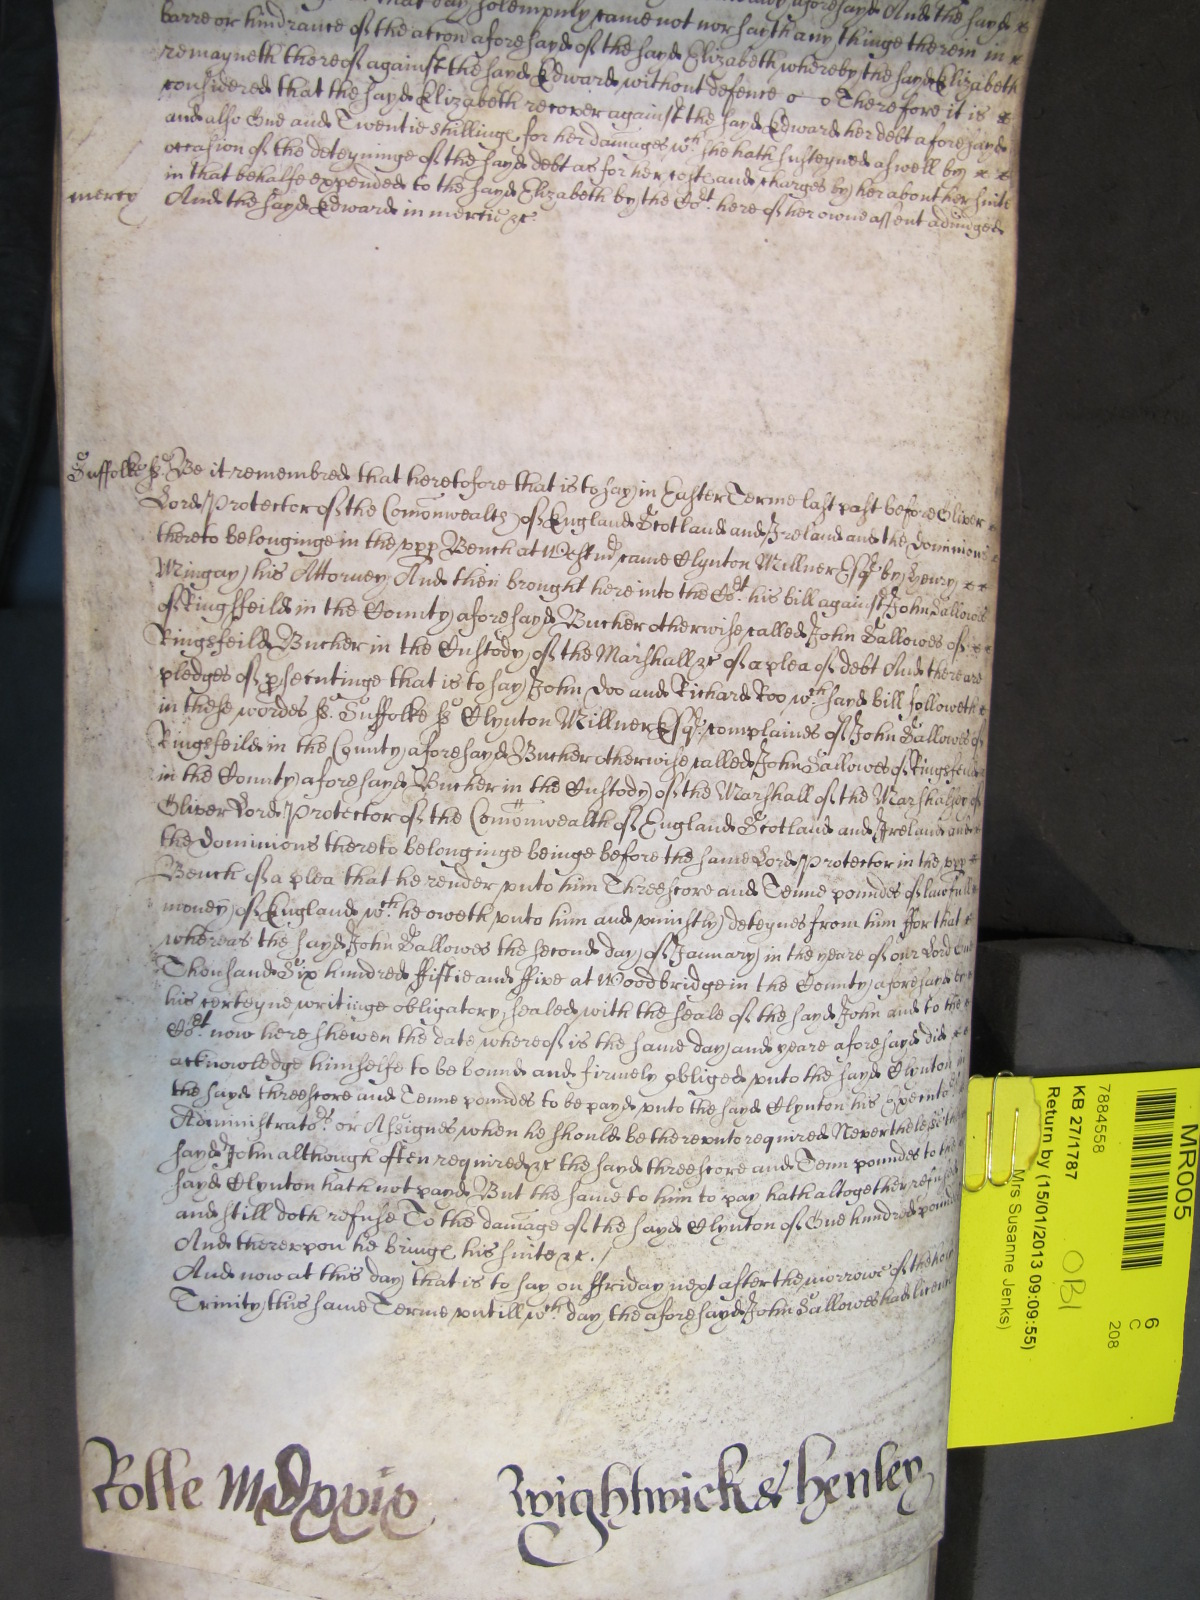 that day solempnly came not nor sayth any thinge therein in
barre or hindrance of the accon aforesayd of the sayd Elizabeth whereby the sayd Elizabeth
remayneth thereof against the sayd Edward without defence Therefore it is
considered that the sayd Elizabeth recover against the sayd Edward her debt aforesayd
and also One and Twentie shillings for her damages wch she hath susteyned aswell by
occasion of the deteyninge of the sayd debt as for her costs and charges by her about her suite
in that behalfe expended to the sayd Elizabeth by the Cort here of her owne assent adiudged
mercy And the sayd Edward in mercie &c
Suffolke ss Be it remembred that heretofore that is to say in Easter Terme last past before Oliver
Lord Protector of the Comonwealth of England Scotland and Ireland and the Dominions
thereto belonginge in the upp Bench at Westmr came Clynton Millner Esqr by Henry
Mingay his Attorney And then brought here into the Cort his bill against John Sallowes
of Ringsfeild in the County aforesayd Bucher otherwise called John Sallowes of
Ringsfeild Bucher in the Custody of the Marshall &c of a plea of debt And there are
pledges of psecutinge that is to say John Doo and Richard Roo wch sayd bill followeth
in these wordes ss. Suffolke ss Clynton Millner Esqr complaines of John Sallowes of
Ringsfeild in the County aforesayd Bucher otherwise called John Sallowes of Ringsfeild
in the County aforesayd Bucher in the Custody of the Marshall of the Marshalsey of
Oliver Lord Protector of the Comonwealth of England Scotland and Ireland and
the Dominions thereto belonginge beinge before the same Lord Protector in the upp
Bench of a plea that he render unto him Threescore and Tenne poundes of lawfull
money of England wch he oweth unto him and uniustly deteynes from him ffor that
whereas the sayd John Sallowes the second day of January in the yeare of our Lord One
Thousand Six hundred ffiftie and ffive at Woodbridge in the County aforesayd by
his certeyne writinge obligatory sealed with the seale of the sayd John and to the
Cort now here shewen the date whereof is the same day and yeare aforesayd did
acknowledge himselfe to be bound and firmely obliged unto the sayd Clynton in
the sayd threescore and Tenne poundes to be payd unto the sayd Clynton his Executors
Administrators or Assignes when he should be thereunto required Neverthelesse the
sayd John although often required &c the sayd threescore and Tenn poundes to the
sayd Clynton hath not payd But the same to him to pay hath altogether refused
and still doth refuse To the damage of the sayd Clynton of One hundred pounds
And thereupon he bringe his suite &c.
And now at this day that is to say on ffriday next after the morrowe of the holy
Trinity this same Terme untill wch day the aforesayd John Sallowes had licence
Rolle MDxxix Wightwick & Henley
MR005
6
C
208
7884558
KB 27/1787 OBI
Return by (15/01/2013 09:09:55)
Mrs Susanne Jenks)